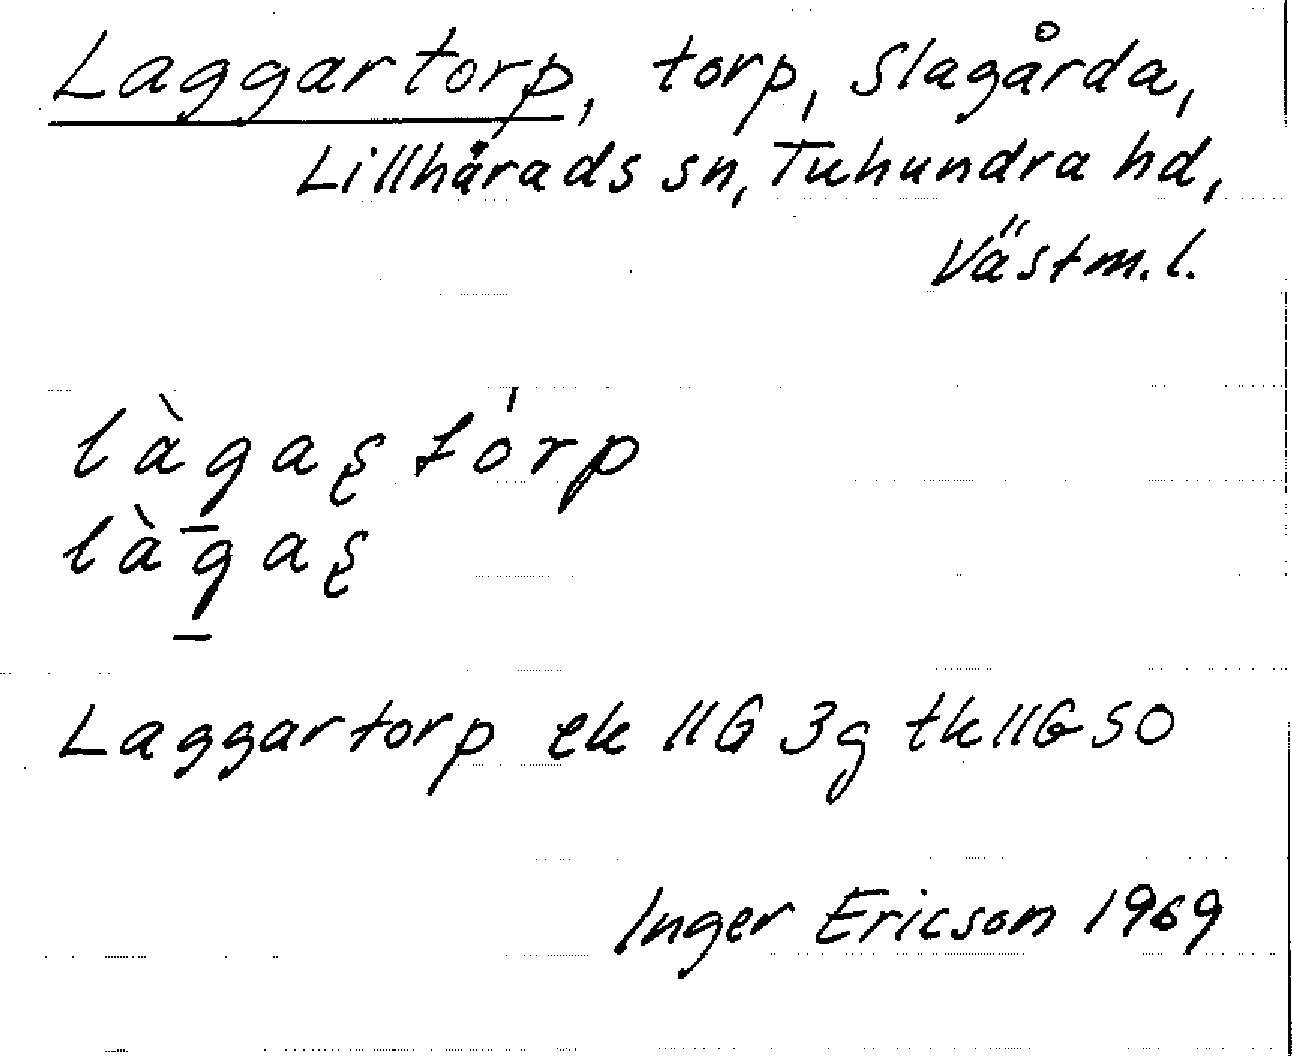 Laggartorp, torp, Slagårda,
Lillhårads sn, Tuhundra hd,
Västm. l.
làgaş tórp
làgaş
Laggartorp ek 11G 3g tk 11G SO
Inger Ericson 1969